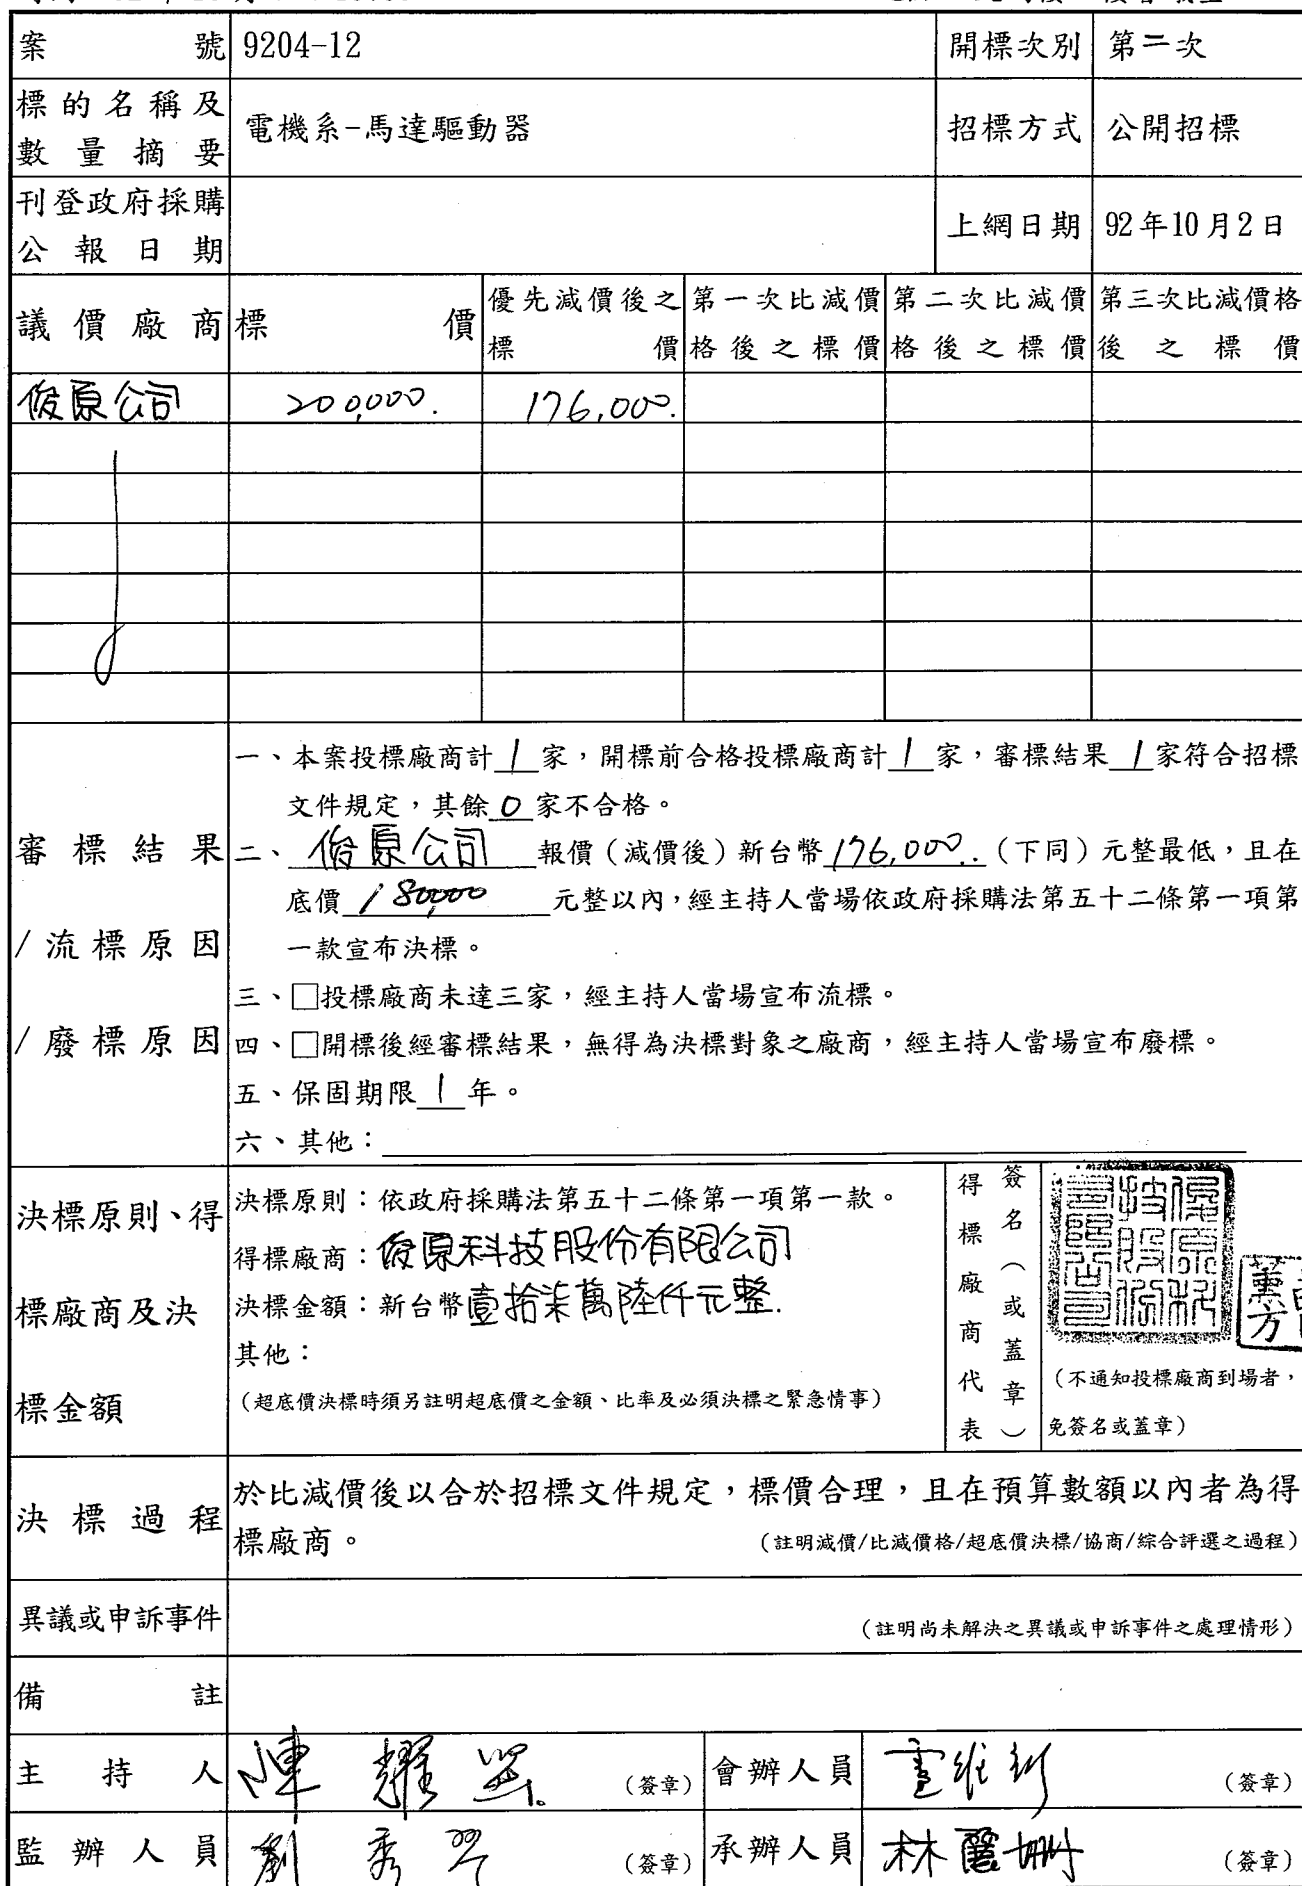 案號 9204-12 開標次別 第二次
標的名稱及
數量摘要 電機系-馬達驅動器 招標方式 公開招標
刊登政府採購
公報日期 上網日期 92年10月2日
議價廠商 標價 優先減價後之標價 第一次比減價格後之標價 第二次比減價格後之標價 第三次比減價格後之標價
俊原公司 200,000. 176,000.
審標結果
/流標原因
/廢標原因
一、本案投標廠商計1家,開標前合格投標廠商計1家,審標結果1家符合招標
文件規定,其餘0家不合格。
二、俊原公司報價(減價後)新台幣176,000.(下同)元整最低,且在
底價180,000元整以內,經主持人當場依政府採購法第五十二條第一項第
一款宣布決標。
三、□投標廠商未達三家,經主持人當場宣布流標。
四、□開標後經審標結果,無得為決標對象之廠商,經主持人當場宣布廢標。
五、保固期限1年。
六、其他:
決標原則、得
標廠商及決
標金額
決標原則:依政府採購法第五十二條第一項第一款。
得標廠商:俊原科技股份有限公司
決標金額:新台幣壹拾柒萬陸仟元整.
其他:
(超底價決標時須另註明超底價之金額、比率及必須決標之緊急情事)
得標廠商代表
簽名(或蓋章)
俊原科技股份有限公司
(不通知投標廠商到場者,
免簽名或蓋章)
決標過程
於比減價後以合於招標文件規定,標價合理,且在預算數額以內者為得
標廠商。 (註明減價/比減價格/超底價決標/協商/綜合評選之過程)
異議或申訴事件 (註明尚未解決之異議或申訴事件之處理情形)
備註
主持人 (簽章) 會辦人員 (簽章)
監辦人員 (簽章) 承辦人員 林麗珊 (簽章)